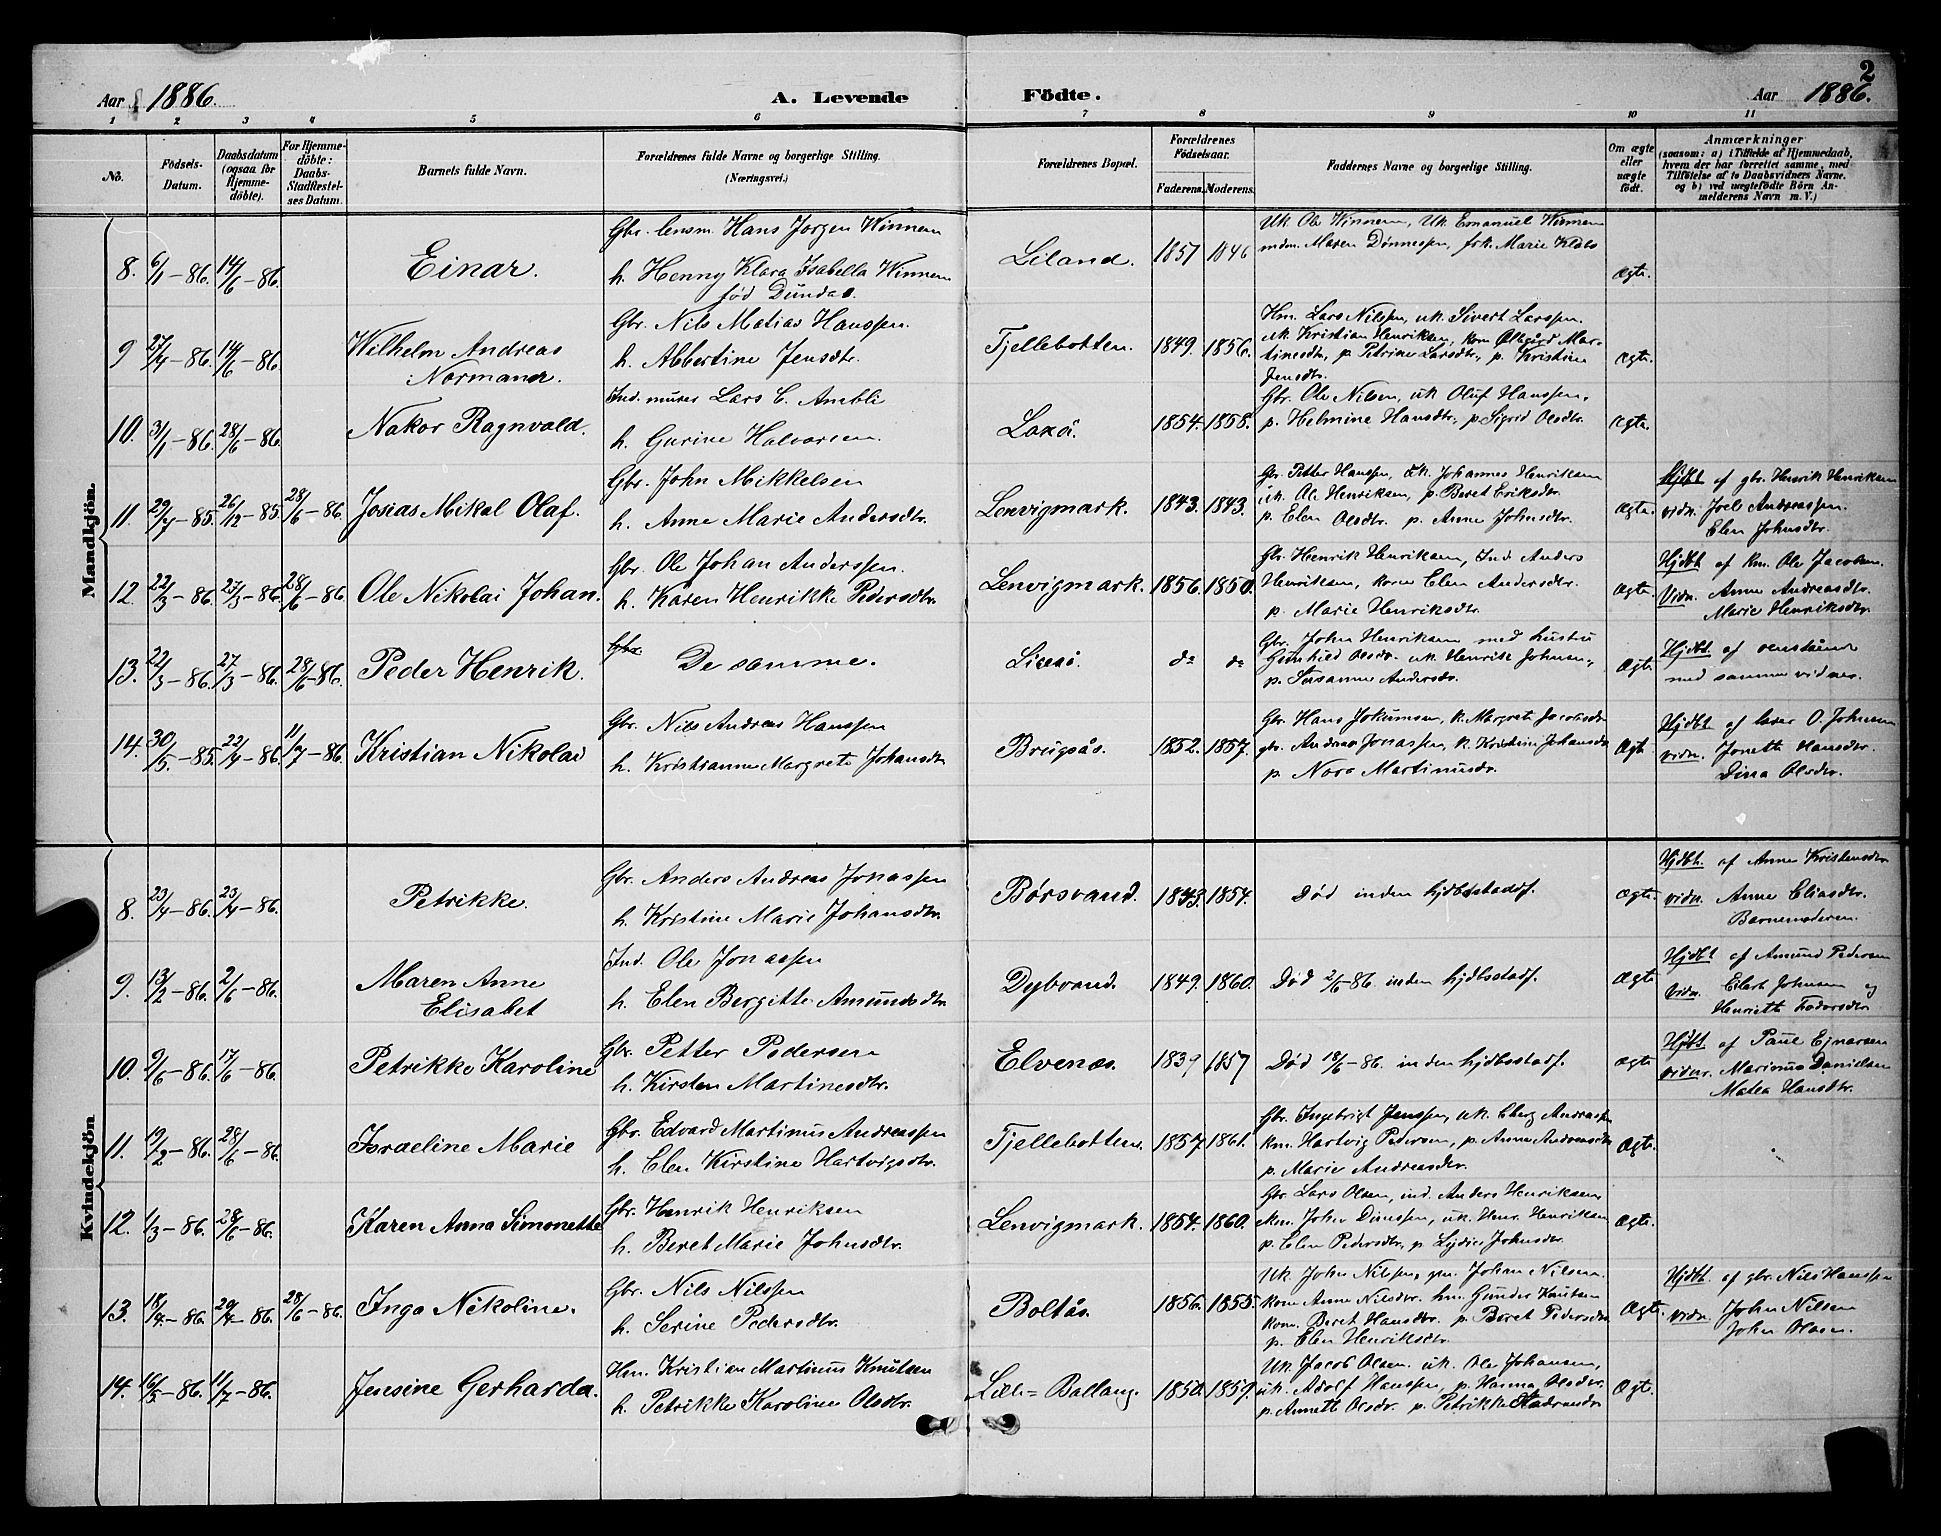 2
Aar 1886. A. Levende Födte. Aar 1886.
1 2 3 4 5 6 7 8 9 10 11
No.
Födsels-Datum.
Daabsdatum (ogsaa for Hjemmedöbte).
For Hjemmedöbte: Daabs-Stadfæstelses Datum.
Barnets fulde Navn.
Forældrenes fulde Navne og borgerlige Stilling.
(Næringsvei.)
Forældrenes Bopæl.
Forældrenes Födselsaar.
Faderens. Moderens.
Faddernes Navne og borgerlige Stilling.
Om ægte eller uægte født.
Anmærkninger
(saasom: a) i Tilfælde af Hjemmedaab, hvem der har forrettet samme, med Tilföielse af to Daabsvidners Navne. og b) ved uægtefödte Börn Anmelderens Navn m. V.)
Mandkjön.
8. 6/1-86. 14/6-86. Einar. Gbr. lensm. Hans Jørgen Winnem
h. Henny Klara Isabella Winnem
fød Dundas.
Liland. 1857 1846
Uk. Ole Winnem, Uk. Emanuel Winnem
mdm. Maren Dønnessen, frk. Marie Klæbo
Ægte.
9 27/4-86. 14/6-86. Wilhelm Andreas
Normann.
Gbr. Nils Matias Hanssen.
h. Abbertine Jensdtr.
Fjellebotten. 1849. 1856.
Hm. Lars Nilssen, uk. Sivert Larssen.
uk. Kristian Henriksen, kom Ollegård Martinesdtr, p. Petrine Larsdtr, p. Kristine
Jensdtr.
Ægte.
10. 3/1-86. 28/6-86. Nakor Ragnvald.
Ind. murer Lars C. Ambli
h. Gurine Halvorsen.
Laxå. 1854. 1858.
Gbr. Ole Nilsen, uk Oluf Hanssen,
p. Helmine Hansdtr, p. Sigrid Olsdtr.
Ægte.
11. 29/7-85. 26/12-85. 28/6-86 Josias Mikal Olaf.
Gbr. John Mikkelsen
h. Anne Marie Andersdtr.
Lenvigmark. 1843. 1843.
Gbr. Petter Hanssen, uk. Johannes Henriksen
uk. Ole Henriksen, p. Beret Eriksdtr
p. Elen Olsdtr. p. Anne Johnsdtr.
Ægte.
Hjdbt. af gbr. Henrik Henriksen
vidn. Joel Andreassen.
Elen Johnsdtr.
12. 22/3-86. 27/3-86. 28/6-86. Ole Nikolai Johan.
Gbr. Ole Johan Anderssen.
h. Karen Henrikke Pedersdtr.
Lenvigmark. 1856. 1850.
Gbr. Henrik Henriksen, Ind. Anders
Henriksen, kone Elen Andersdtr.
p. Marie Henriksdtr.
Ægte.
Hjdbt af Km. Ole Jacobsen.
Vidn. Anne Andreasdtr
Marie Henriksdtr.
13. 22/3-86. 27/3-86. 28/6-86. Peder Henrik.
Gbr De samme.
do do
Gbr. John Henriksen med hustru
Gunhild Olsdtr. uk. Henrik Johnsen,
p. Susanne Andersdtr.
Ægte
Hjdbt. af ovenstående
med samme vidner.
14. 30/5-85. 22/4-86. 11/7-86. Kristian Nikolai
Gbr. Nils Andreas Hanssen
h. Kristianne Margrete Johansdtr
Brugsås. 1852. 1857.
Gbr. Hans Jokumsen, k. Margrete Jacobsdtr
gbr. Andreas Jonassen, k. Kristine Johansdtr
p. Nora Martinusdtr.
Ægte
Hjdbt. af lærer O. Johnsen
vidn. Jonette Hansdtr.
Dina Olsdtr.
Kvindekjön
8. 23/4-86. 23/4-86. Petrikke.
Gbr. Anders Andreas Jonassen
h. Kristine Marie Johansdtr.
Børsvand. 1843. 1854.
Død inden hjdbsstadf.
Ægte.
Hjdbt. af Anne Kristensdtr
vidn. Anne Eliasdtr.
Barnemoderen.
9. 13/2-86. 2/6-86. Maren Anne
Elisabet
Ind. Ole Jonassen
h. Elen Bergitte Amundsdtr
Dybvand. 1849. 1860.
Død 2/6-86. inden hjdbsstadf.
Ægte
Hjdbt af Amund Pedersen
vidn. Eilert Johnsen og
Henriette Fedorsdtr
10. 9/6-86. 17/6-86. Petrikke Karoline
Gbr. Petter Pedersen
h. Kirsten Martinesdtr.
Elvenæs. 1839 1857
Død 18/6-86. inden hjdbsstadf.
Ægte
Hjdbt. af Paul Ejnarsen
vidnr. Marianna Danielsen
Matea Hansdtr.
11. 19/2-86. 28/6-86. Israeline Marie
Gbr. Edvard Martinus Andreassen
h. Elen Kirstine Hartvigsdtr.
Fjellebotten. 1857. 1861.
Gbr. Ingebrigt Jenssen, uk. Eberg Andreassen
km. Hartvig Pedersen, p. Anne Andreasdtr
p. Marie Andreasdtr.
Ægte.
12. 1/3-86. 28/6-86. Karen Anna Simonette
Gbr. Henrik Henriksen
h. Beret Marie Johnsdtr.
Lenvigmark. 1854. 1860.
Gbr. Lars Olsen, ind. Anders Henriksen,
km. John Dinessen, uk. Henr. Henriksen
p. Elen Pedersdtr, p. Lydia Johnsdtr.
Ægte.
13. 18/4-86. 20/4-86. 28/6-86. Inga Nikoline.
Gbr. Nils Nilssen
h. Serine Pedersdtr.
Boltås. 1856. 1855.
Uk. John Nilssen, gm. Johan Nilsen.
kom Anne Nilsdtr. hm. Gunder Knutsen
kom. Beret Hansdtr. p. Beret Pedersdtr
p. Elen Henriksdtr.
Ægte.
Hjdbt. af gbr. Nils Hanssen
vidn. John Nilsen
John Olsen.
14. 16/5-86. 11/7-86. Jensine Gerharda.
Hm. Kristian Martinus Knutsen
h. Petrikke Karoline Olsdtr.
Lille-Ballang. 1850. 1859.
Uk. Jacob Olsen. uk. Ole Johansen,
uk. Adolf Hanssen, p. Hanna Olsdtr.
p. Annette Olsdtr. p. Petrikke
Ægte.